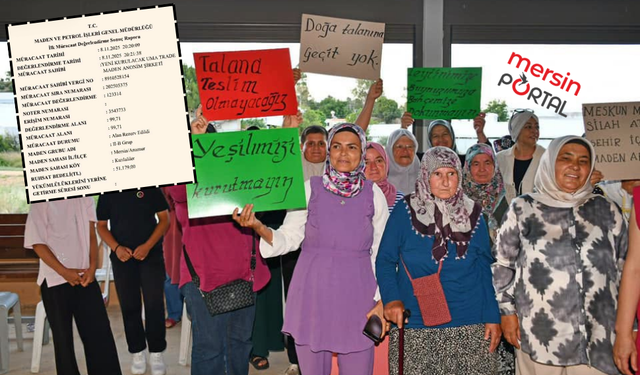 T.C.
MADEN VE PETROL İŞLERİ GENEL MÜDÜRLÜĞÜ
İlk Müracaat Değerlendirme Sonuç Raporu
MÜRACAAT TARİHİ : 8.11.2025 20:20:09
DEĞERLENDİRME TARİHİ : 8.11.2025 20:21:38
MÜRACAAT SAHİBİ
MADEN ANONİM ŞİRKETİ
MÜRACAAT SAHİBİ VERGİ NO : 8910528154
MÜRACAAT SIRA NUMARASI : 202503375
MÜRACAAT DEĞERLENDİRME
NOTER NUMARASI
ERİŞİM NUMARASI : 3543753
DEĞERLENDİRME ALANI : 99,71
MÜRACAAT ALANI : 99,71
MÜRACAAT DURUMU : Alan Raporu Edildi
MADEN GRUBU ADI : II-B Grup
MADEN SAHASI İL/İLÇE : Mersin/Anamur
MADEN SAHASI KÖY
RUHSAT BEDELİ(TL) : 51.179,00
YÜKÜMLÜLÜKLERİNİ YERİNE
GETİRME SÜRESİ SONU
Doğa talanına
Geçit yok.
Talana
Teslim
Olmayacağız
Yeşilimizi
kurutmayın
mersin
PORTAL
MESKUN